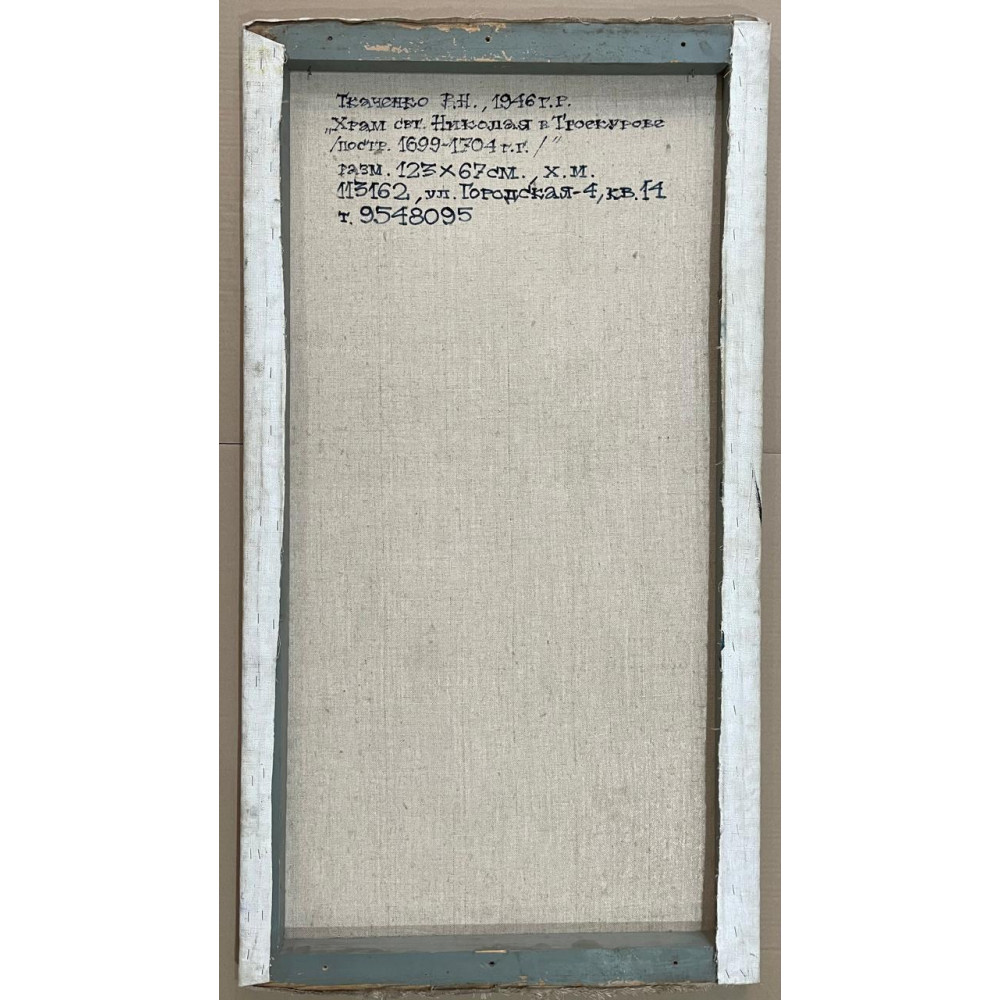 Ткаченко Р.Н., 1946 г.р.
„Храм свт. Николая в Троекурове
/постр. 1699-1704 г.г./"
разм. 123×67 см., х.м.
113162, ул. Городская-4, кв. 14
т. 9548095